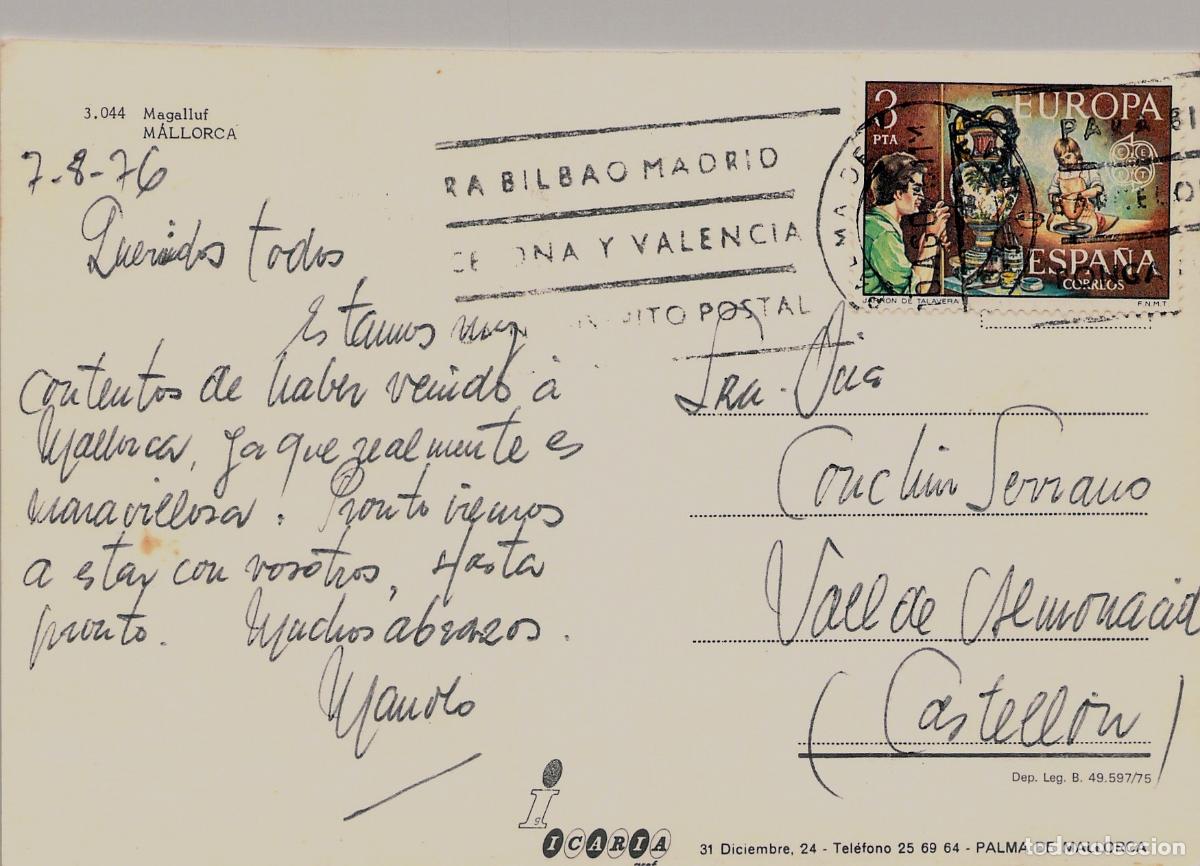 3.044 Magalluf
MALLORCA
7-8-76
Queridos todos
Estamos muy
contentos de haber venido a
Mallorca, ya que realmente es
maravillosa. Pronto iremos
a estar con vosotros, Hasta
pronto. Muchos abrazos.
Manolo
RA BILBAO MADRID
CELONA Y VALENCIA
ITO POSTAL
3 PTA
EUROPA
ESPAÑA
CORREOS
JARRON DE TALAVERA
F.N.M.T.
PARA BI
PONGA
Sra. Dña
Conchin Serrano
Vall de Almonacid
(Castellón)
Dep. Leg. B. 49.597/75
ICARIA
31 Diciembre, 24 - Teléfono 25 69 64 - PALMA DE MALLORCA
todocoleccion